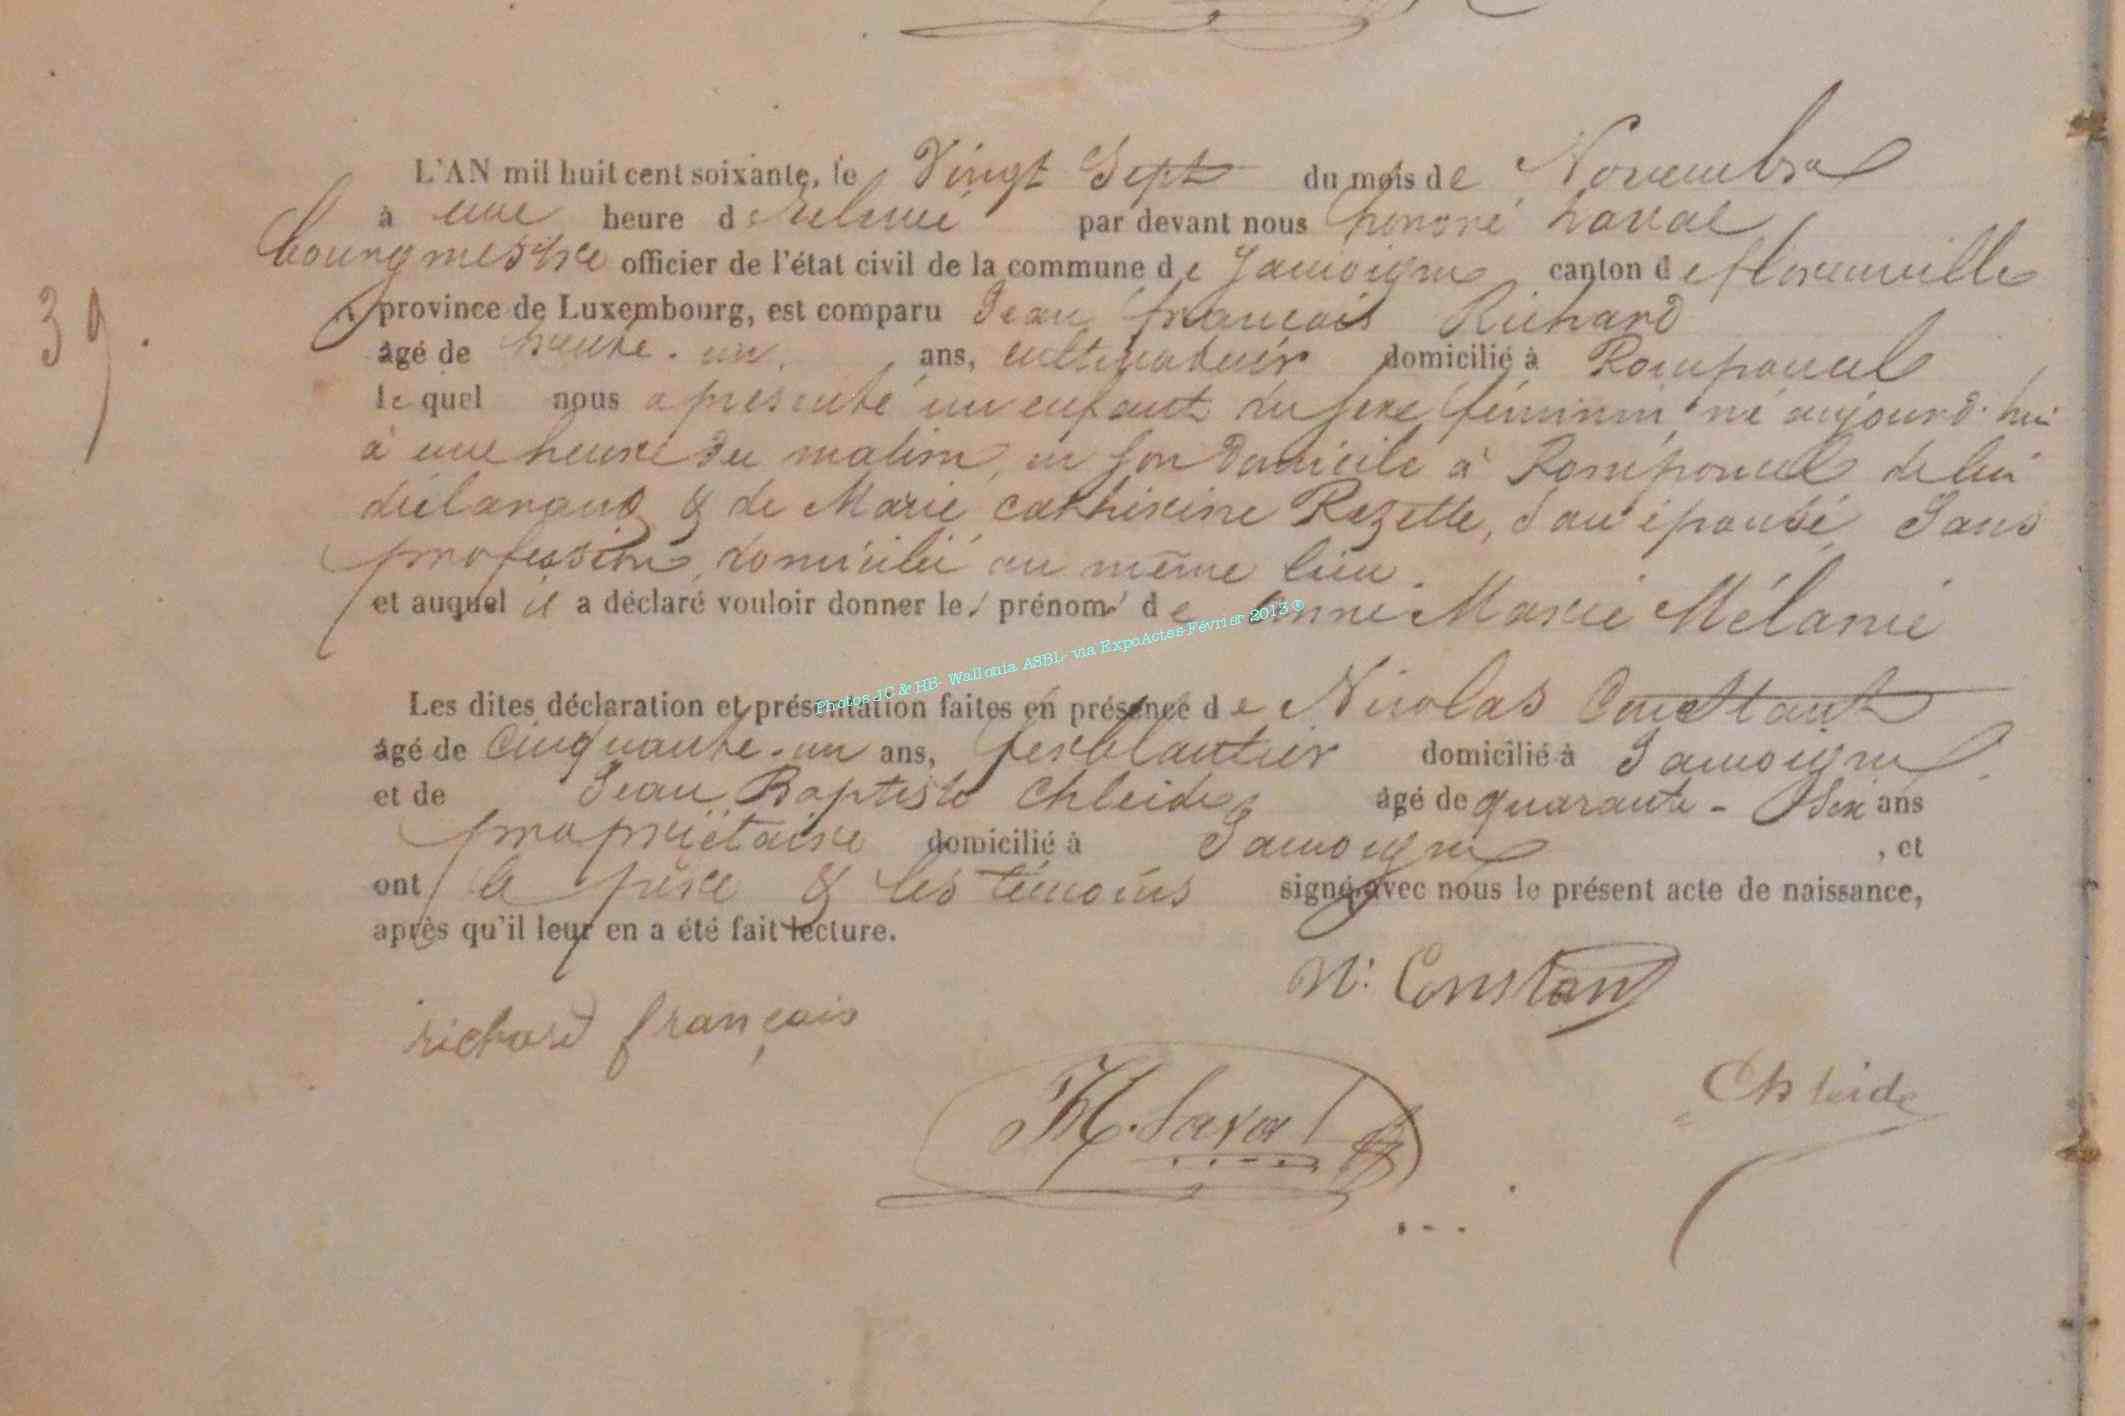 39.
L'AN mil huit cent soixante, le Vingt Sept du mois de Novembre
à une heure de relevée par devant nous honoré Laval
bourgmestre officier de l'état civil de la commune de Jamoigne canton de florenville
province de Luxembourg, est comparu Jean françois Richard
âgé de trente-un ans, cultivateur domicilié à Romponcel
lequel nous a présenté un enfant du sexe féminin, né aujourd'hui
à une heure du matin, en son domicile à Romponcel de lui
déclarant & de Marie Catherine Rezette, son épouse, Sans
profession, domicilié au même lieu.
et auquel il a déclaré vouloir donner les prénoms de Anne Marie Mélanie
Photos JC & HB- Wallonia ASBL- via ExpoActes-Février 2013 ®
Les dites déclaration et présentation faites en présence de Nicolas Constant
âgé de Cinquante-un ans, ferblantier domicilié à Jamoigne
et de Jean Baptiste Chleide âgé de quarante-Six ans
propriétaire domicilié à Jamoigne , et
ont le père & les témoins signé avec nous le présent acte de naissance,
après qu'il leur en a été fait lecture.
N: Constan
richard françois
H. Laval
Chleide